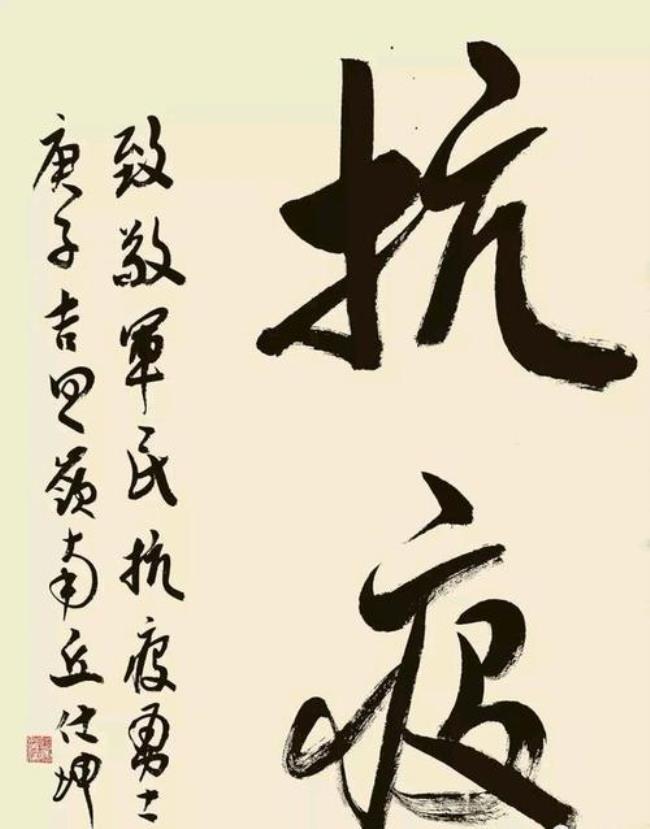 抗疫
致敬军民抗疫勇士
庚子吉旦嶺南丘仕坤